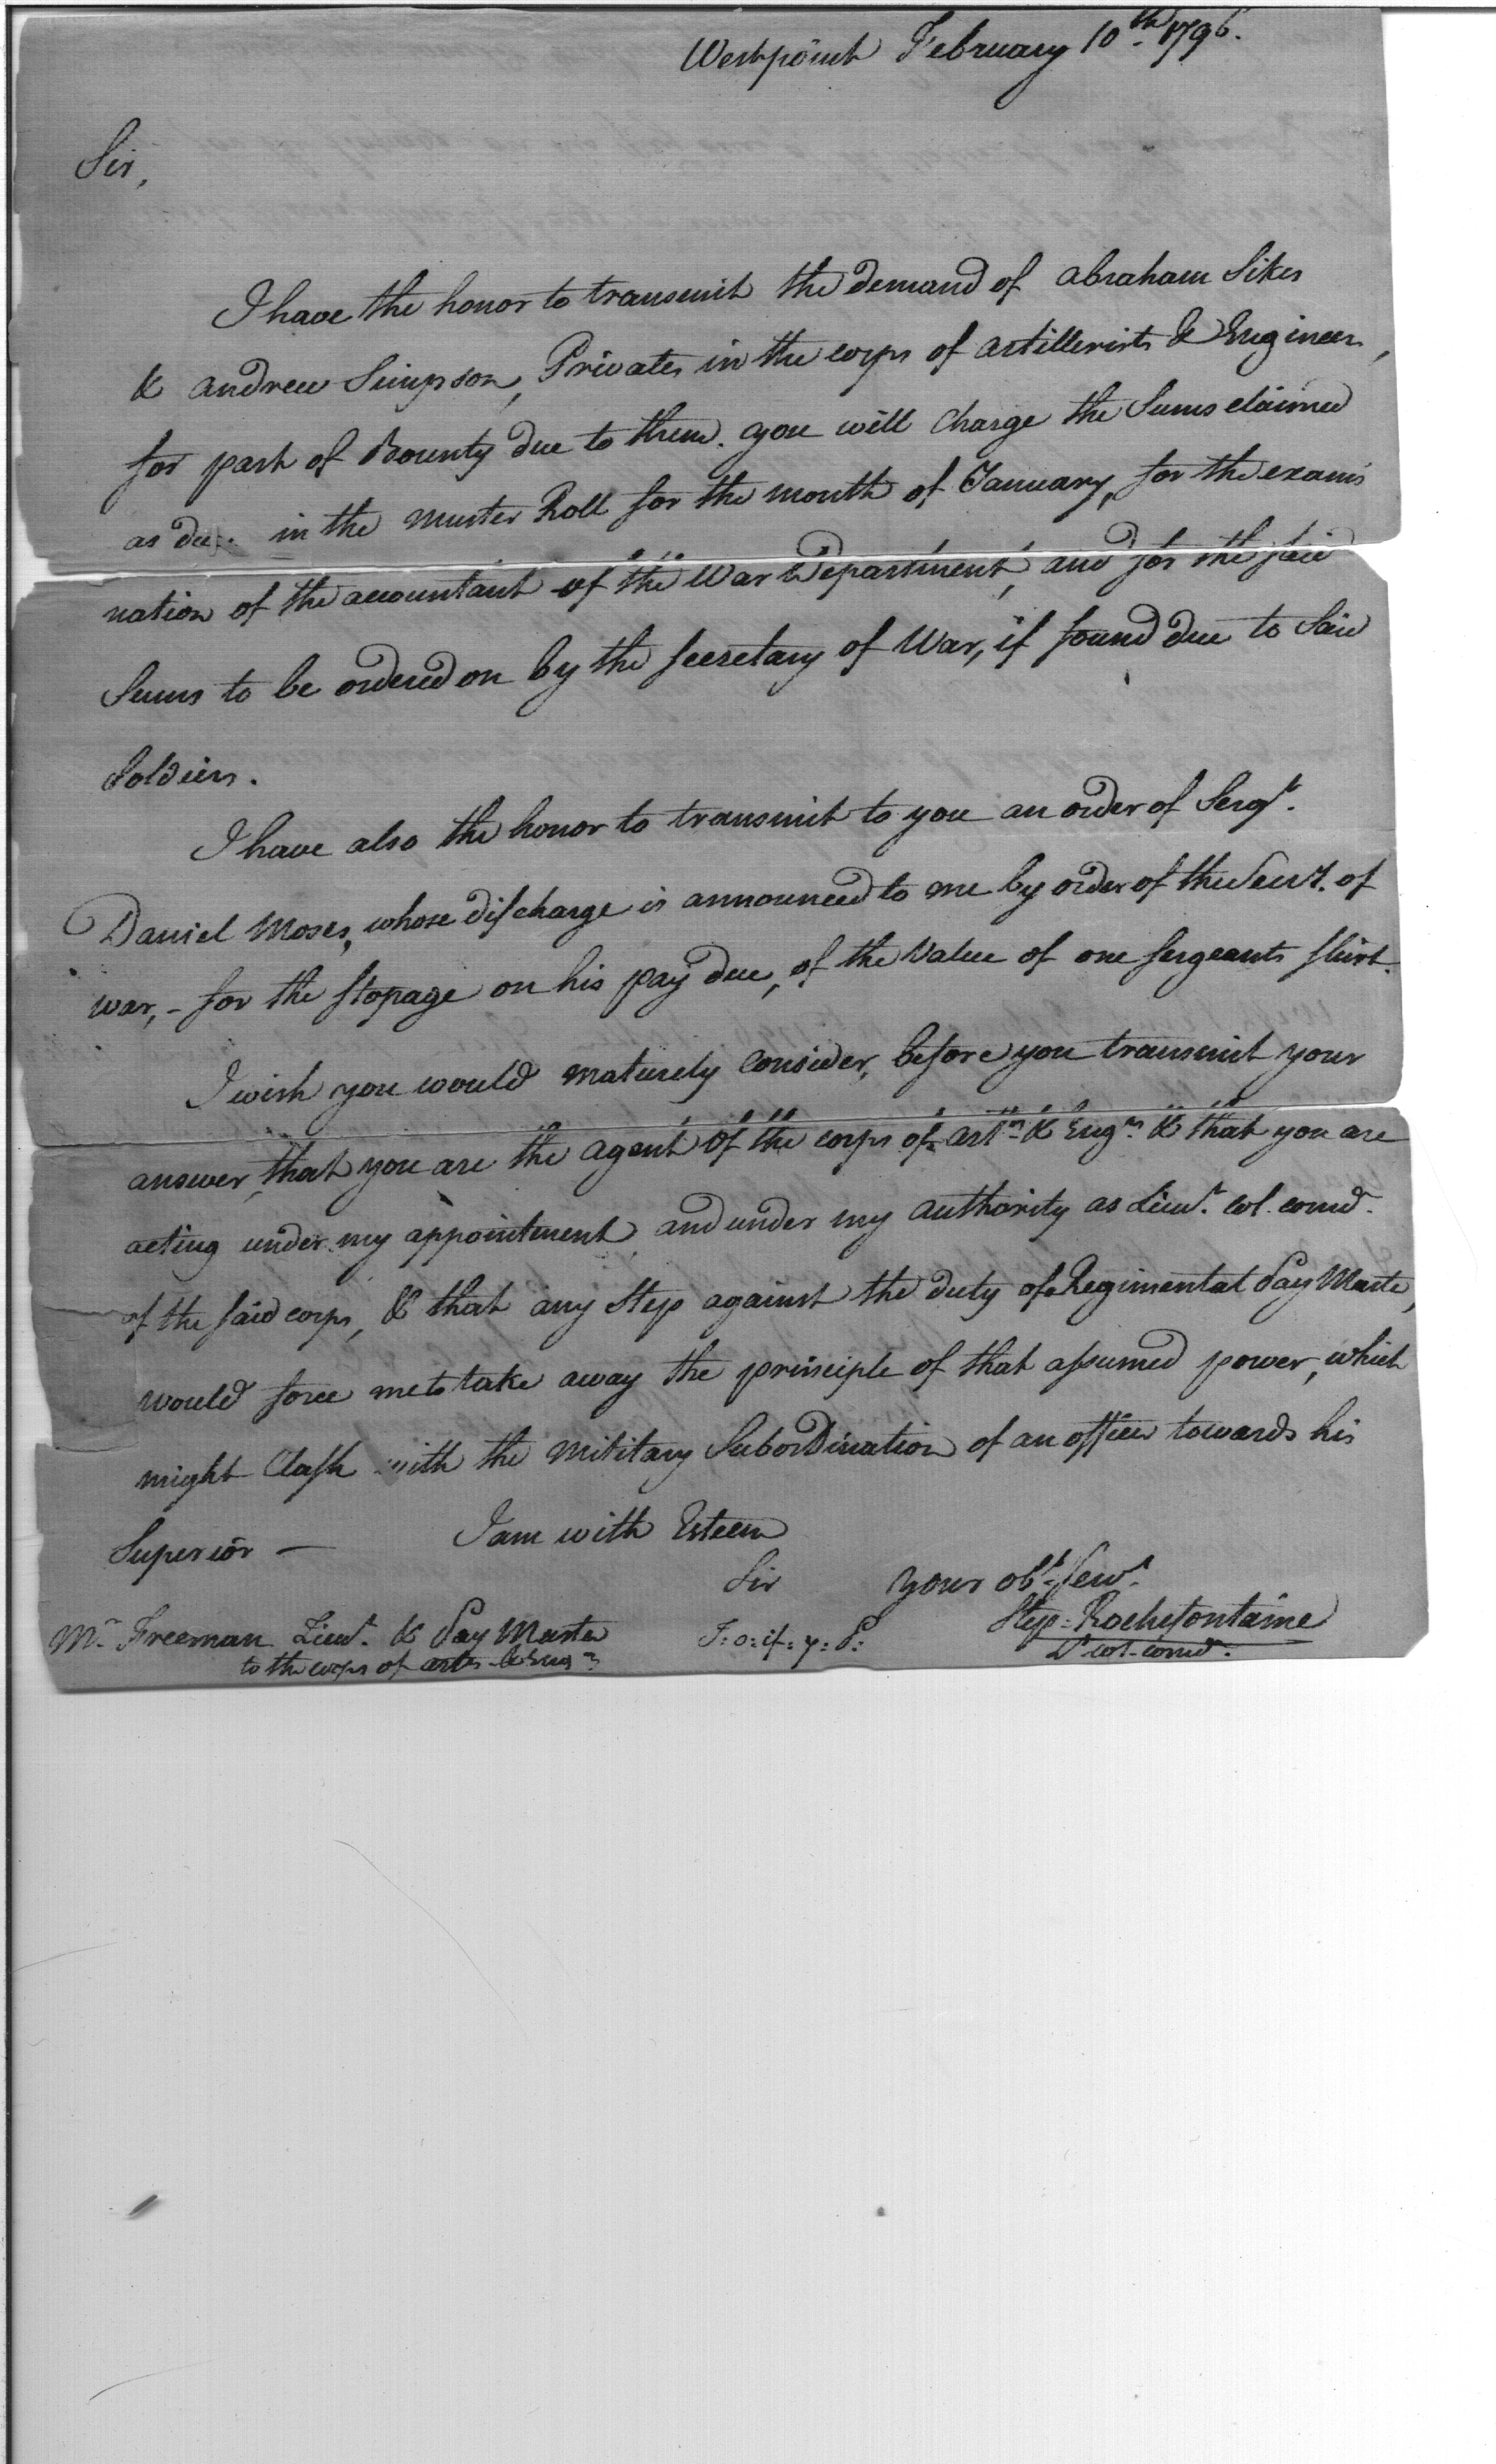 Westpoint February 10th 1796.
Sir,
I have the honor to transmit the demand of abraham Sikes
& andrew Simpson, Privates in the corps of artillerists & Engineers,
for part of Bounty due to them. you will charge the Sums claimed
as due in the muster Roll for the month of January, for the exami
nation of the accountant of the War Department, and for the said
Sums to be ordered on by the secretary of War, if found due to Said
Soldiers.
I have also the honor to transmit to you an order of Sergt.
Daniel Moses, whose discharge is announced to me by order of the Secrt. of
war, - for the stopage on his pay due, of the Value of one sergeants shirt.
I wish you would maturely Consider, before you transmit your
answer, that you are the agent of the corps of artrs & Engrs & that you are
acting under my appointment and under my authority as Lieut. Col. comdt.
of the said corps, & that any Step against the duty of Regimental Pay Master,
would force me to take away the principle of that assumed power, which
might Clash with the military Subordination of an officer towards his
Superior —
I am with Esteem
Sir your obt. servt.
Mr. Freeman Lieut. & Pay Master
to the corps of arts & Engrs
Step. Rochefontaine
Lt col. comdt.